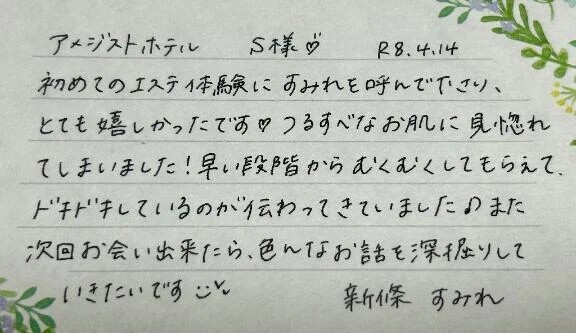 アメジストホテル S様♡ R8.4.14
初めてのエステ体験にすみれを呼んで下さり、
とても嬉しかったです♡つるすべなお肌に見惚れ
てしまいました!早い段階からむくむくしてもらえて、
ドキドキしているのが伝わってきていました♪また
次回お会い出来たら、色んなお話を深掘りして
いきたいです
新條 すみれ